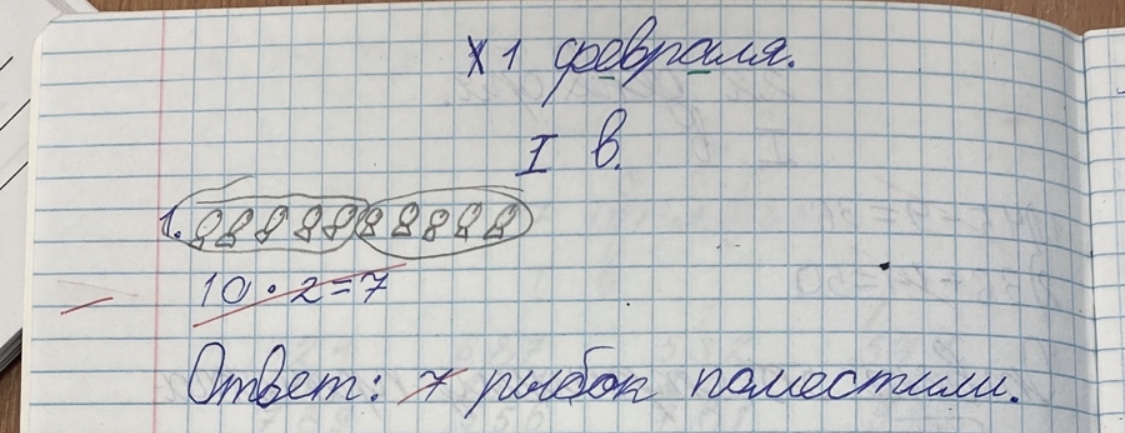 11 февраля.
I в.
1.
10 · 2 = 7
Ответ: 7 рыбок поместили.